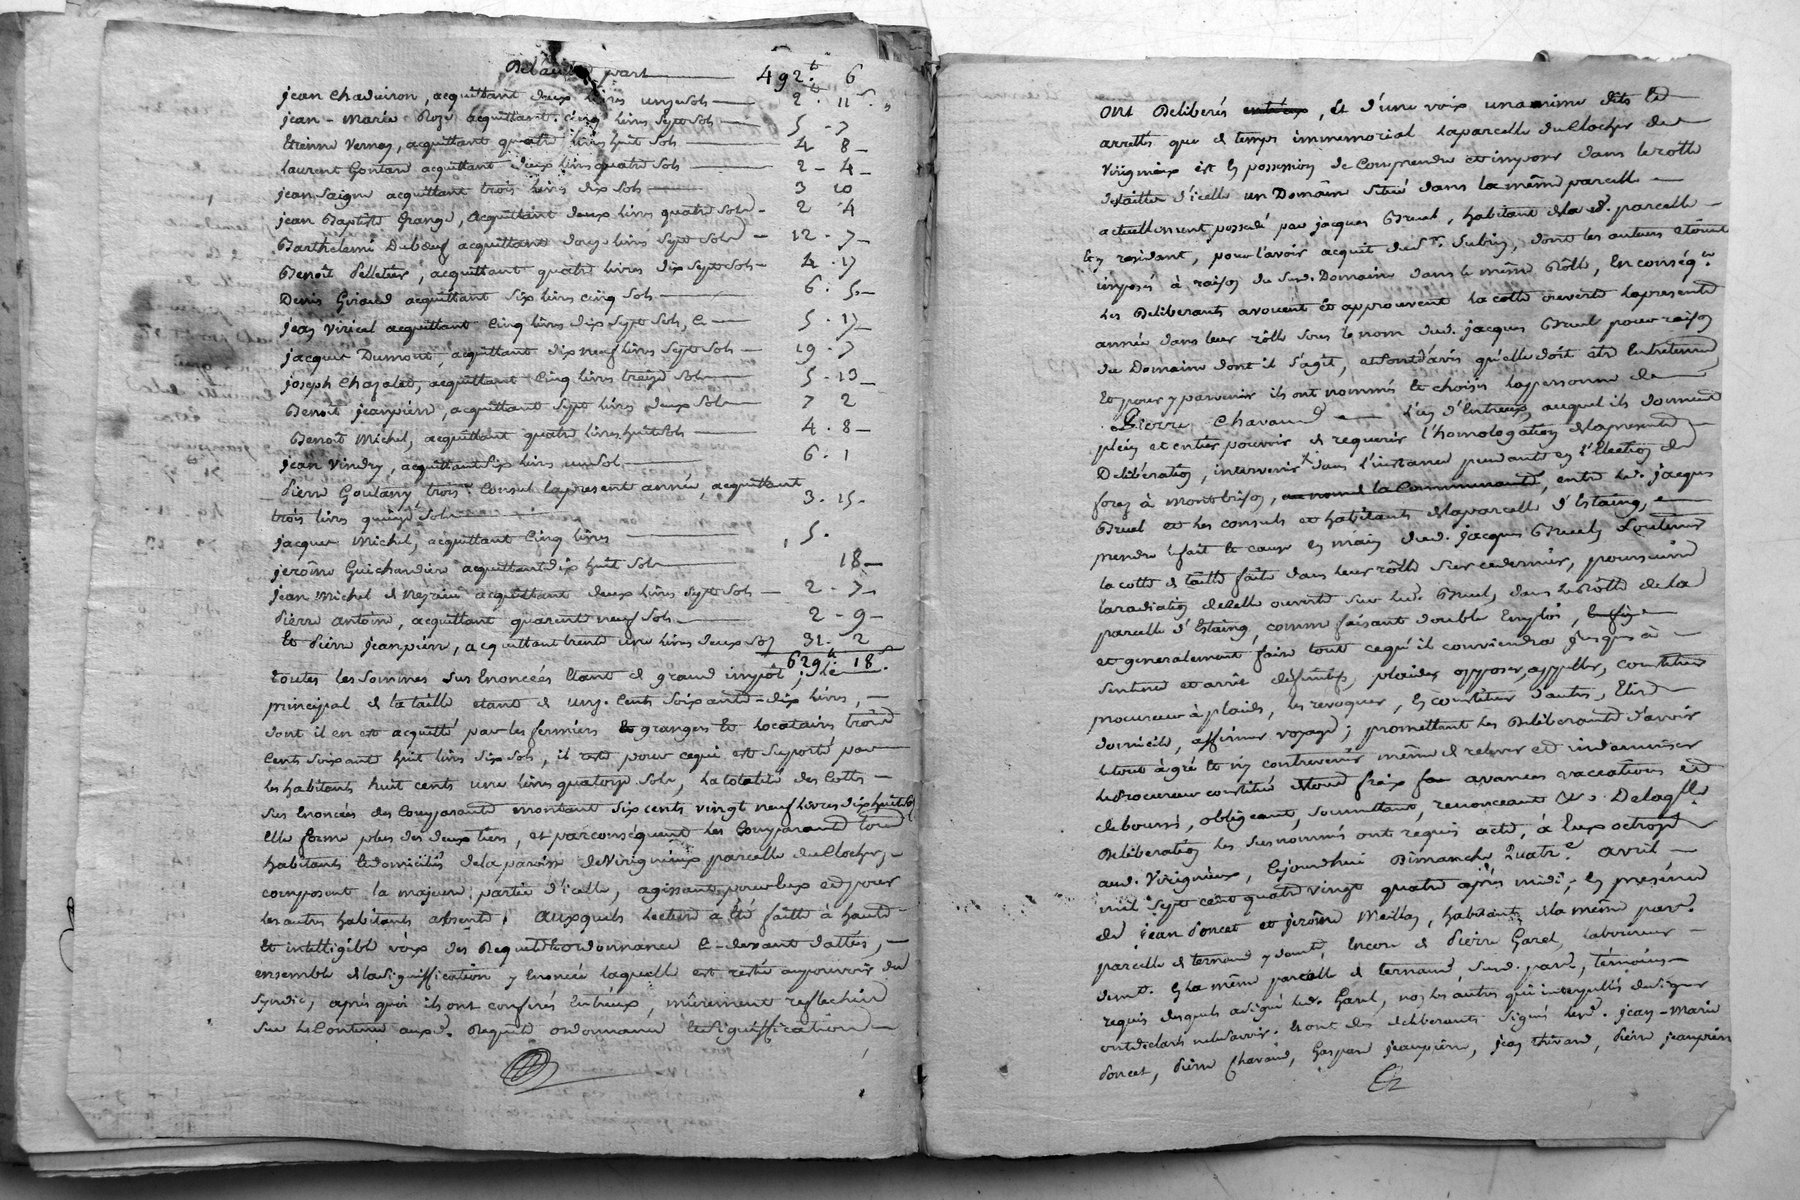 De l'autre part 492.tt 6
jean Chadeiron, acquittant deux livres unze sols 2. 11 s. "
jean-marie Roze acquittant. cinq livres sept sols 5 - 7
Etienne Vernay, acquittant quatre livres huit sols 4 8
laurent Gontard acquittant deux livres quatre sols 2 - 4
jean Saigne acquittant trois livres dix sols 3 10
jean Baptiste Grange, acquittant deux livres quatre sols 2 4
Barthelemi Duboeuf acquittant douze livres sept sols 12 - 7
Benoît Pelletier, acquittant quatre livres dix sept sols 4 . 17
Denis Giraud acquittant six livres cinq sols 6 . 5
jean Viricel acquittant cinq livres dix sept sols, 5 . 17
jacques Dumont, acquittant dix neuf livres sept sols 19 . 7
joseph Chazalet, acquittant cinq livres treize sols 5 . 13
Benoît jeanpierre, acquittant sept livres deux sols 7 2
Benoît Michel, acquittant quatre livres huit sols 4 . 8
jean Vindry, acquittant six livres un sol 6 . 1
Pierre Goutany Consul la presente année, acquittant
trois livres quinze sols 3 . 15
jacques Michel, acquittant cinq livres 5 .
jerôme Guichardier acquittant dix huit sols 18
jean Michel acquittant deux livres sept sols 2 . 7
Pierre antoine, acquittant quarente neuf sols 2 - 9
Et Pierre jeanpierre, acquittant trente une livres deux sols 31 . 2
629 tt. 18 s.
toutes les sommes sus Enoncées Etant de grand impôt, Le
principal de la taille etant de unze. Cents soixante-dix livres,
dont il en est acquitté par les fermiers grangers Et locataires trois
Cents soixante huit livres six sols, il reste pour ce qui est suporté par
les habitants huit cents une livres quatorze sols, La totalité des Cottes
sus Enoncées des Comparants montant six cents vingt neuf Livres dix huit sols
Elle forme plus des deux tiers, et par conséquent Les Comparants tous
habitants Et domiciliés de la paroisse de Virigneux parcelle du Clocher,
composent la majeure partie d'icelle, agissant pour Eux et pour
les autres habitants absents; auxquels Lecture a Eté faitte à haute
Et intelligible voix des Requette & ordonnance Ci-devant dattés,
ensemble de la Signiffication y Enoncée laquelle est restée au pouvoir du
Syndic, après quoi ils ont conferés Entr'eux, mûrement reflechir
sur Le Contenu auxd. Requette ordonnance Et Signiffication
ont Deliberés entr'eux, Et d'une voix unanime dits Et
arrettés que de temps immemorial la parcelle du Clocher de
Virigneux est En possession de Comprendre et imposer dans le rolle
des tailles d'icelle un Domaine situé dans la même parcelle
actuellement possedé par jacques Bruel, habitant de la d. parcelle
Et y residant, pour l'avoir acquit du Sr. Dubier, dont les auteurs etoient
imposés à raison du susd. Domaine dans le même Rôlle, En conséqce.
Les Deliberants avouent Et approuvent la cotte ouverte la presente
année dans leur rôlle sous le nom dud. jacques Bruel pour raison
du Domaine dont il s'agit, et sont d'avis qu'elle doit etre Entretenue
Et pour y parvenir ils ont nommés Et choisis la personne de
Pierre Chavand L'un d'Entreux, auquel ils donnent
plein et entier pouvoir de requerir l'homologation de la presente
Deliberation, intervenir dans l'instance pendante en l'Election de
forez à montbrison, au nom de la Communauté, entre Led. jacques
Bruel et Les consuls et habitants de la parcelle d'Estaing,
prendre le fait Et cause En main dud. jacques Bruel, soutenir
la cotte de taille faite dans leur rôlle sur ce dernier, poursuivre
la radiation de celle ouverte sur Led. Bruel, dans le Rôlle de la
parcelle d'Estaing, comme faisant double Emploi, Enfin
et generalement faire tout ce qu'il conviendra jusques à
sentence et arrêt definitifs, plaider opposer, appeller, constituer
procureur à plaids, les revoquer, En constituer d'autres, Elire
domicile, affirmer voyage; promettant Les Deliberants d'avoir
le tout à gré Et n'y contrevenir même de relever et indamniser
Le Procureur constitué de tous fraix avances vaccations et
debourcés, obligeant, soumettant, renonceant &c. De laqlle.
Deliberation les sus nommés ont requis acte, à Eux octroyé
aud. Virigneux, Cejourdhui Dimanche Quatre. avril
mil sept cent quatre vingt quatre après midi, En presence
de jean Poncet et jerôme Meillan, habitants de la même par.
parcelle de ternand y demt, Encore de Pierre Garel, laboureur
demt. En la même parcelle de ternand, susd. parse, témoins
requis desquels a signé Led. Garel, non les autres qui interpellés de signer
ont declarés ne le savoir. Et ont des deliberants signés Lesd. jean-Marie
Poncet, Pierre Chavand, Gaspard jeanpierre, jean thivard, Pierre jeanpierre
Et